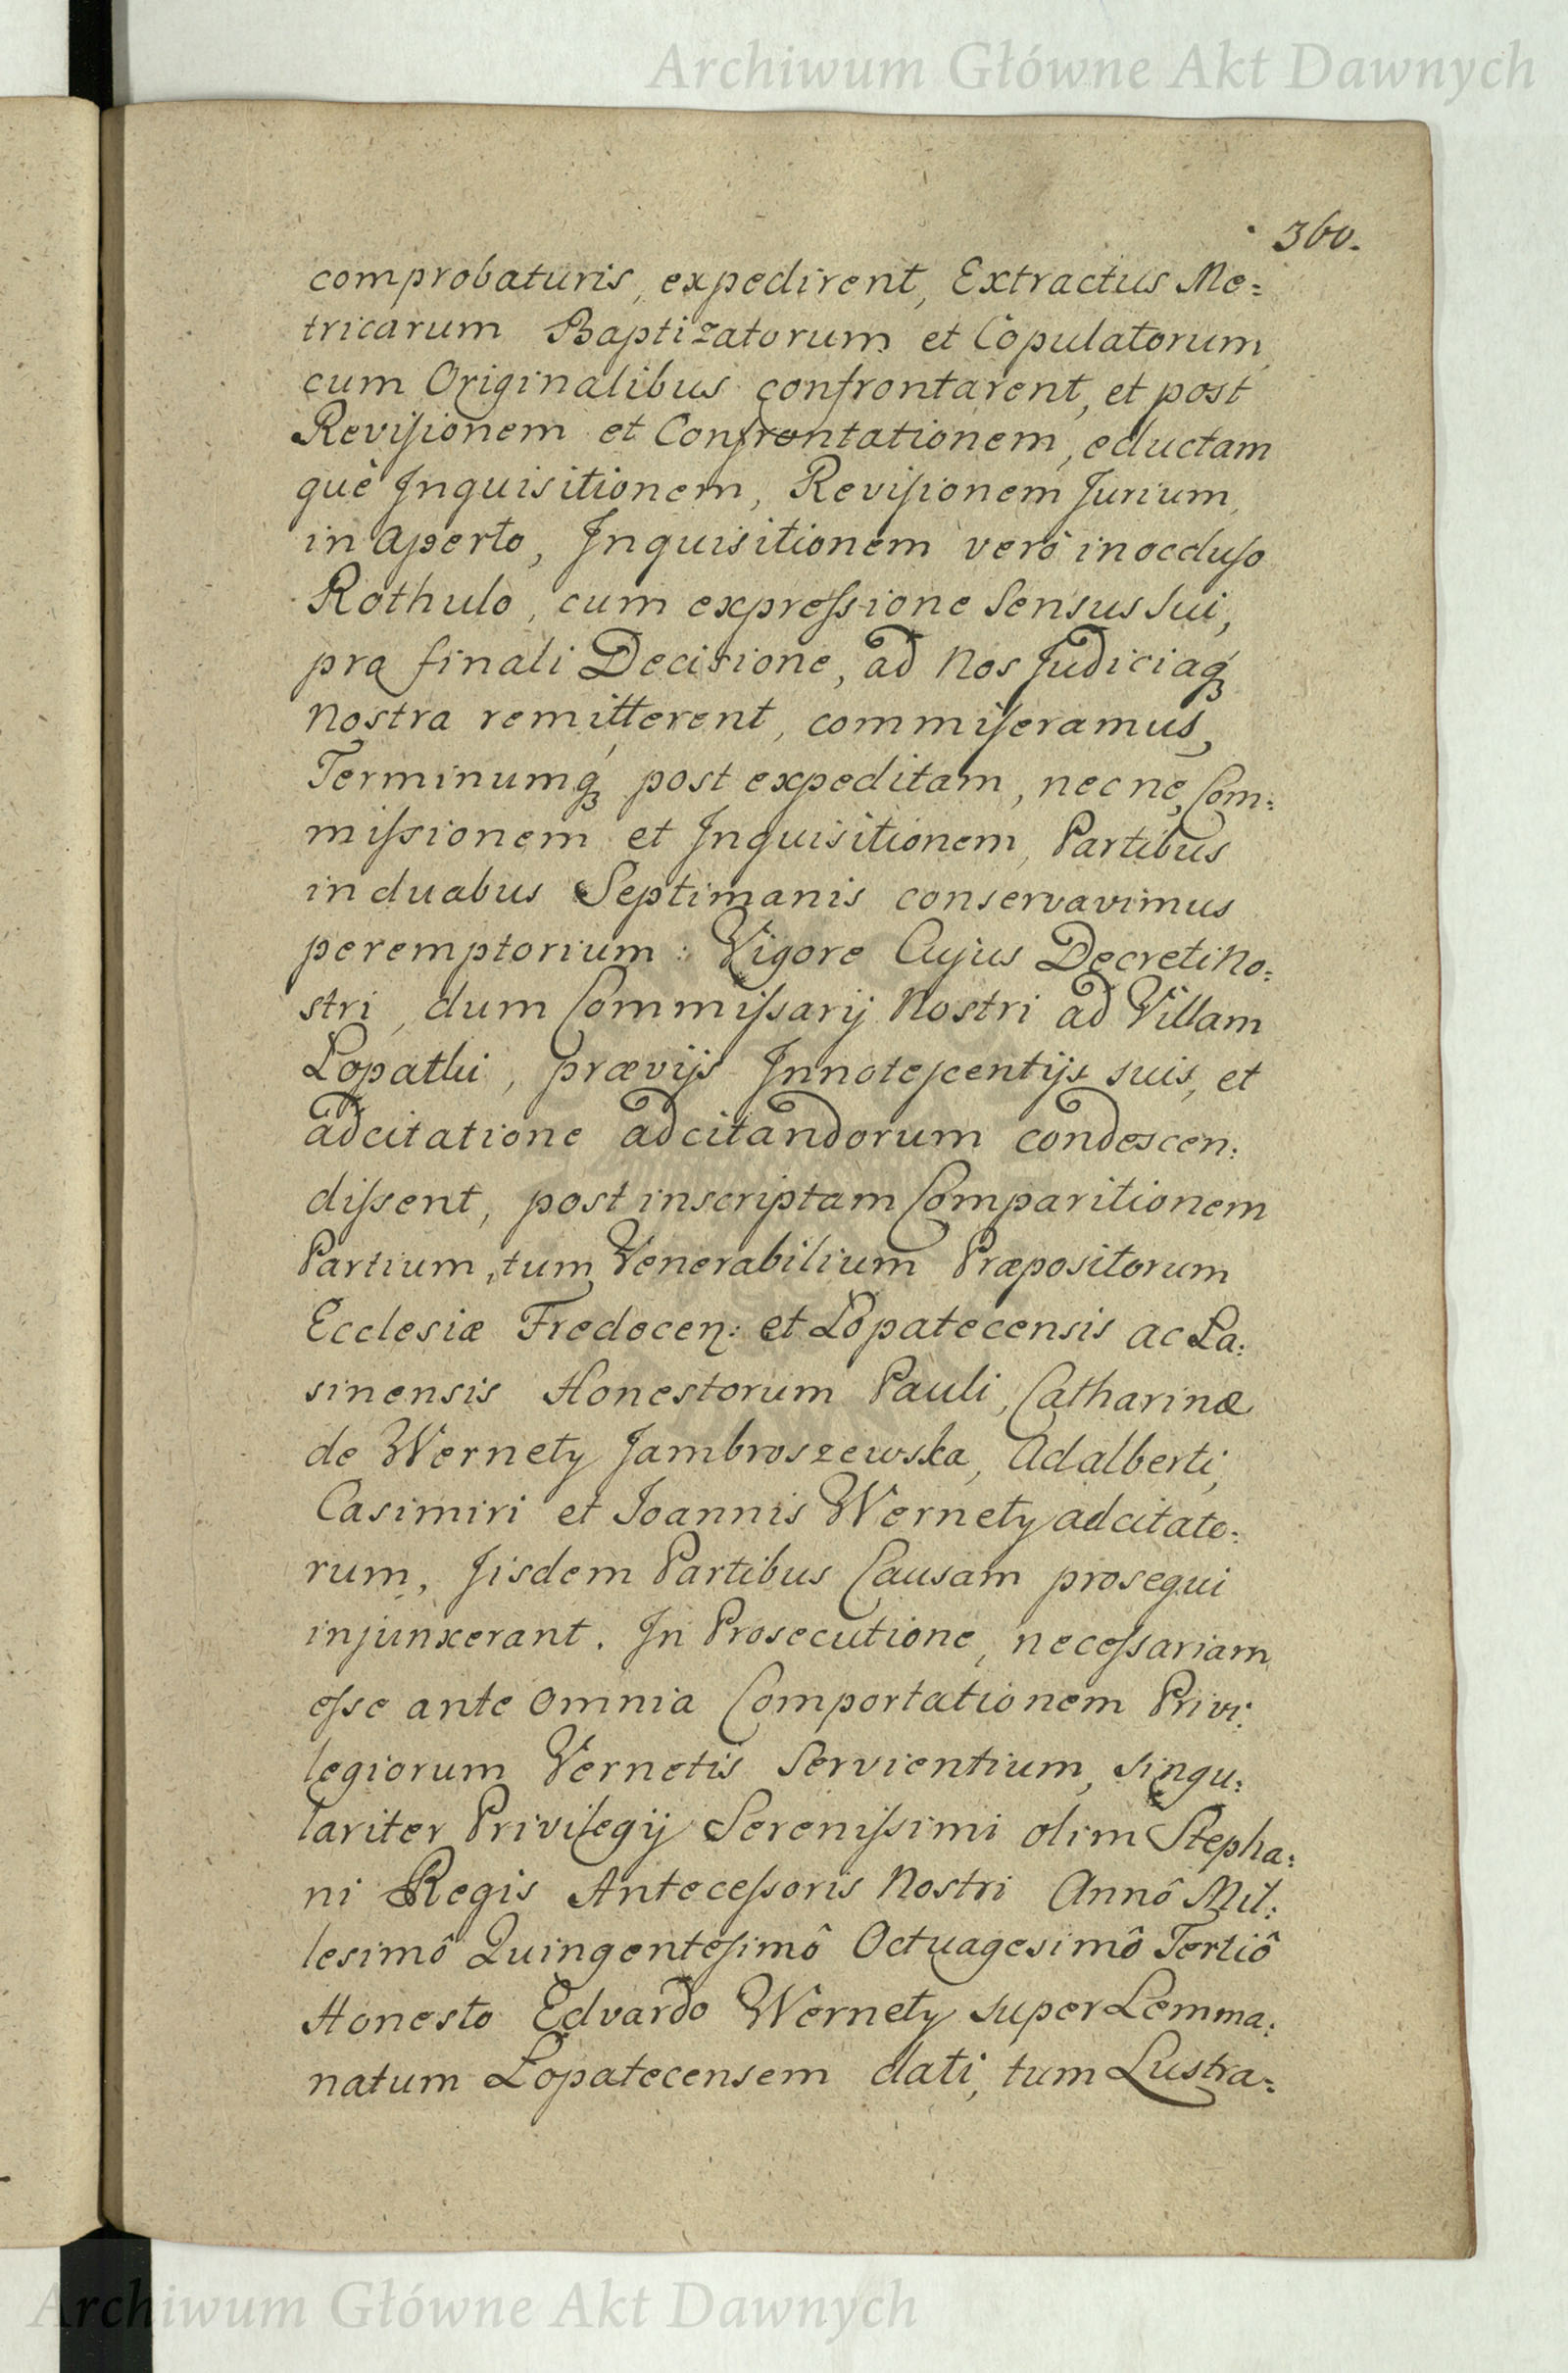 Archiwum Główne Akt Dawnych
360.
comprobaturis, expedirent, Extractus Me=
tricarum Baptizatorum et Copulatorum
cum Originalibus confrontarent, et post
Reviſionem et Confrontationem, eductam
què Inquisitionem, Reviſionem Jurium
in aperto, Inquisitionem verò in occluſo
Rothulo, cum expreſsione Sensus Sui,
pro finali Decisione, ad Nos Judiciaq́ꝫ
Nostra remitterent, commiſeramus,
Terminumq́ꝫ post expeditam, nec ne, Com=
miſsionem et Inquisitionem, Partibus
in duabus Septimanis conservavimus
peremptorium: Vigore Cujus Decreti No=
stri, dum Commiſsarij Nostri ad Villam
Łopatki, prævijs Innoteſcentijs suis, et
adcitatione adcitandorum condescen:
diſsent, post inscriptam Comparitionem
Partium, tum Venerabilium Præpositorum
Ecclesiæ Fredecen: et Łopatecensis ac Ła:
sinensis Honestorum Pauli, Catharinæ
de Wernety Jambroszewska, Adalberti,
Casimiri et Joannis Wernety adcitato:
rum, Iisdem Partibus Causam prosequi
injunxerant. In Prosecutione, neceſsariam
eſse ante omnia Comportationem Privi:
legiorum Vernetis Servientium, singu:
lariter Privilegij Sereniſsimi olim Stepha:
ni Regis Anteceſsoris Nostri Annô Mil:
lesimô Quingenteſimô Octuagesimô Tertiô
Honesto Edvardo Wernety super Lemma:
natum Łopatecensem dati, tum Lustra=
Archiwum Główne Akt Dawnych